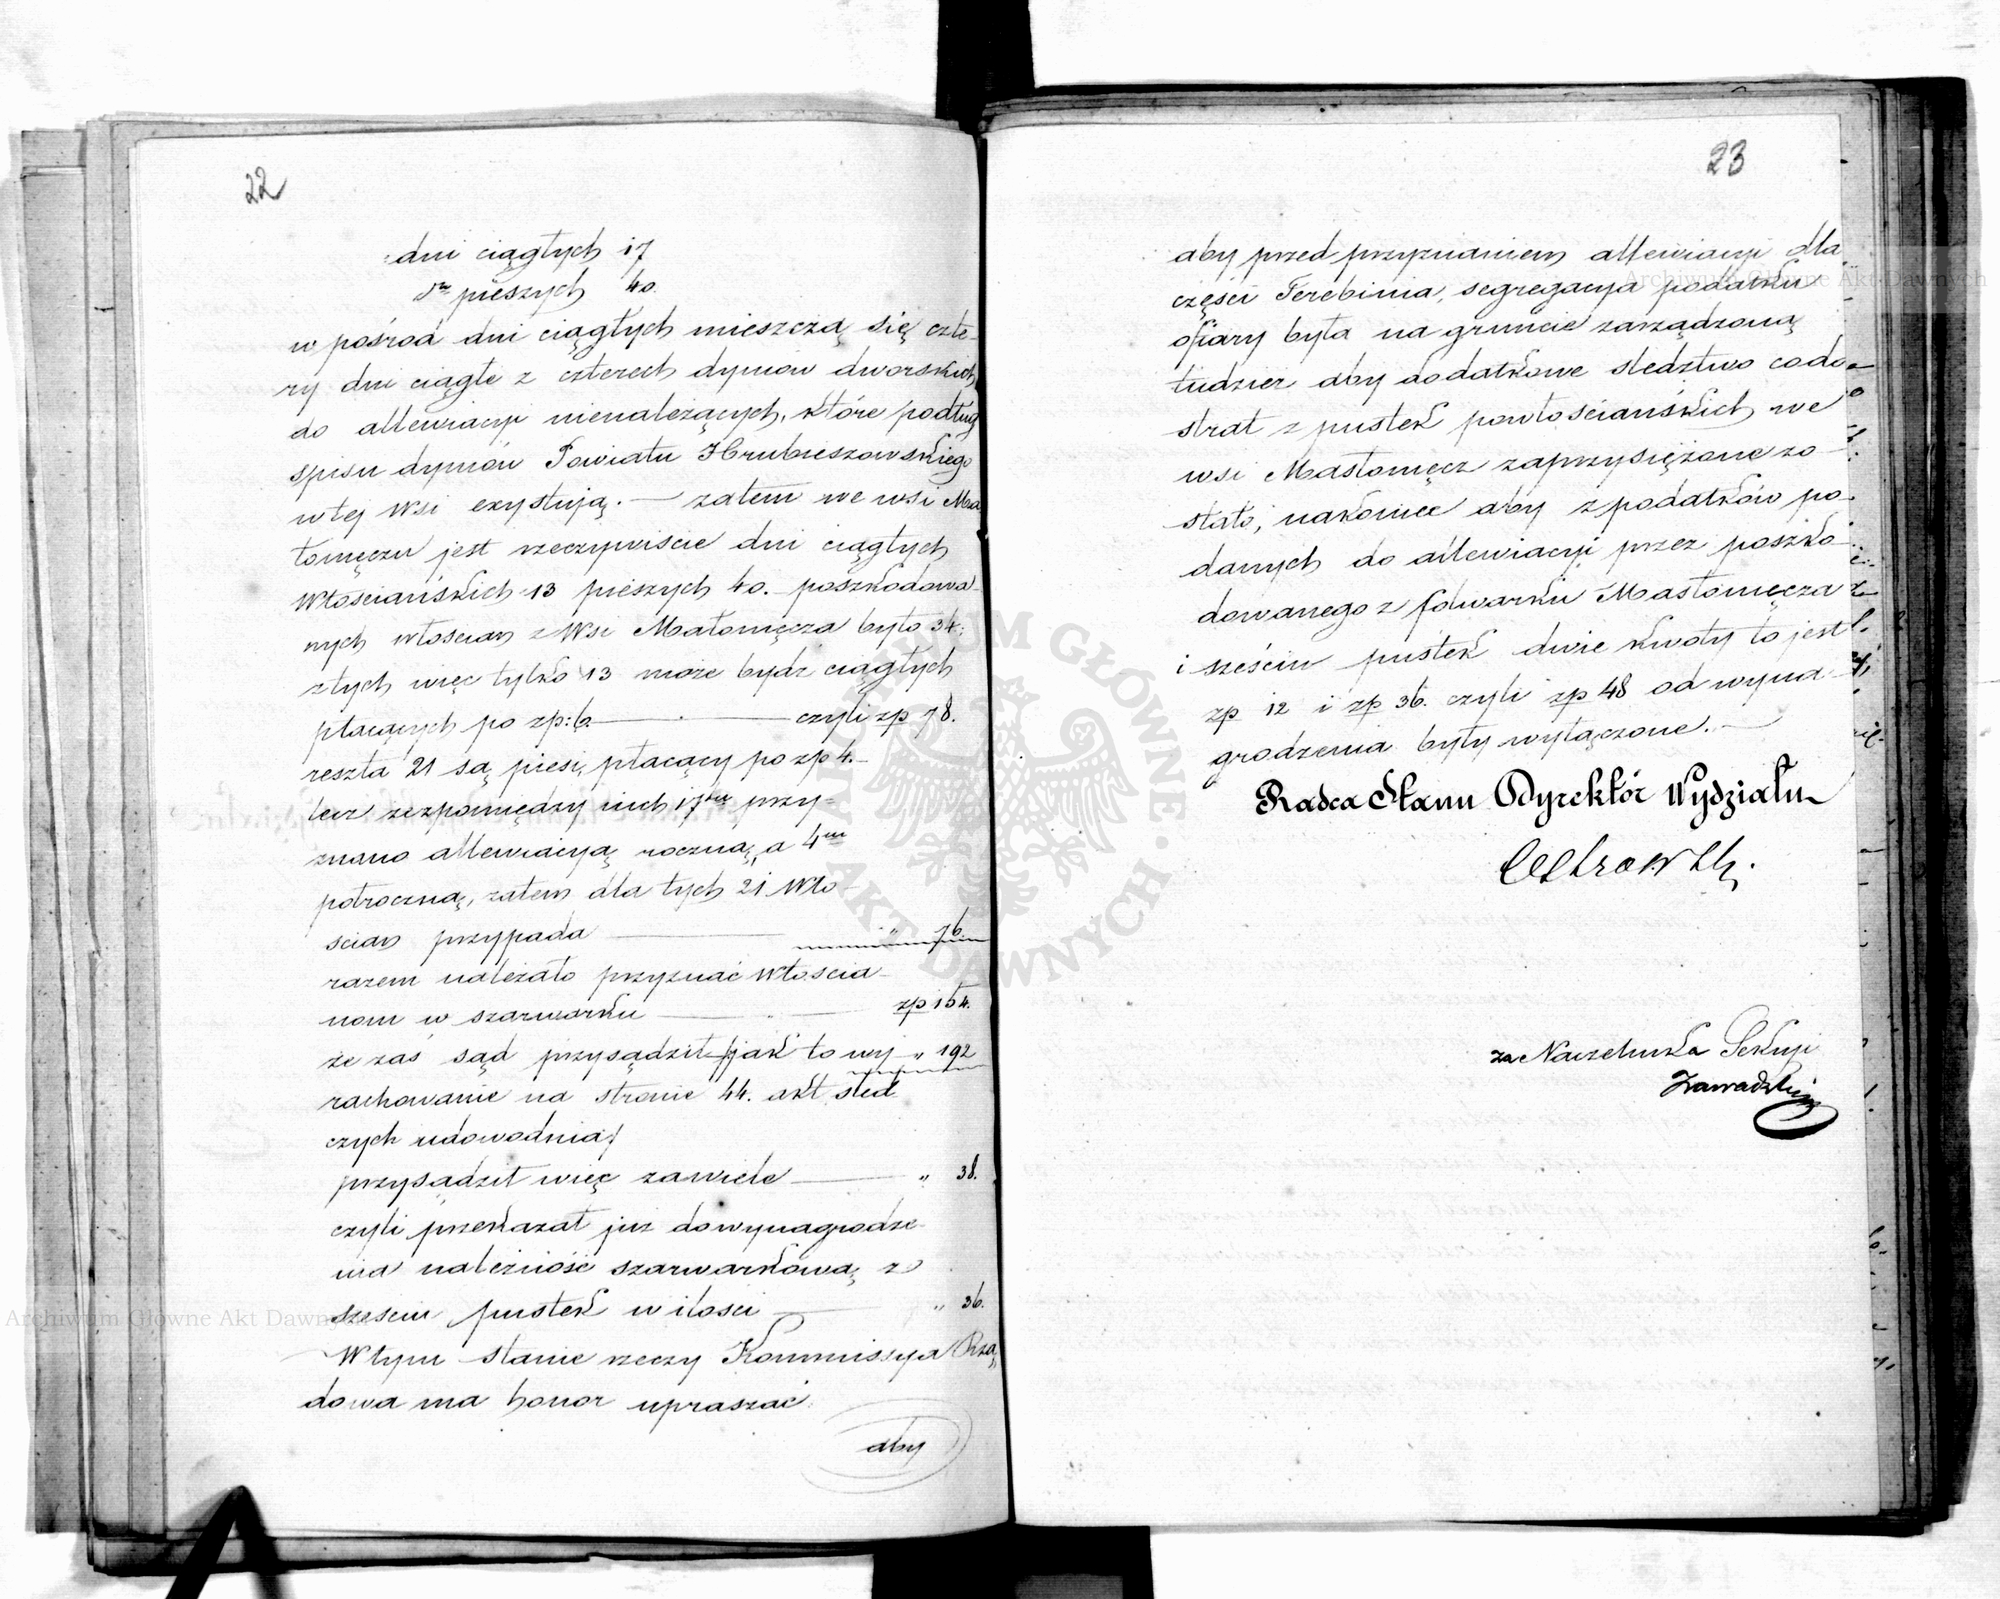 22
dni ciągłych 17
dto pieszych 40.
w pośrod dni ciągłych mieszczą się czte-
ry dni ciągłe z czterech dymów dworskich
do allewiacyi nienależących, które podług
spisu dymów Powiatu Hrubieszowskiego
w tej wsi exystują. — zatem we wsi Ma
łomęczu jest rzeczywiscie dni ciągłych
Włościańskich 13 pieszych 40. poszkodowa-
nych włoscian z Wsi Małomęcza było 34.
z tych więc tylko 13 może bydz ciągłych
płacących po zp: 6. — czyli zp 78.
reszta 21 są piesi, płacący po zp 4. —
lecz zezpomiędzy nich 17tu przy-
znano allewiacyą roczną, a 4m
połroczną, zatem dla tych 21 Wło-
scian przypada — „ 76.
razem należało przyznać Włoscia-
nom w szarwarku — zp 154.
że zaś sąd przysądził /:jak to wy- „ 192
rachowanie na stronie 44. akt śled
czych udowodnia:/
przysądził więc zawiele — „ 38.
czyli przekazał już do wynagrodze-
nia należność szarwarkową z
sześciu pustek w ilości — „ 36.
W tym stanie rzeczy Kommissya Rzą
dowa ma honor upraszać
aby
23
aby przed przyznaniem allewiacyi dla
części Terebinia, segregacya podatku
ofiary była na gruncie zarządzoną
tudzież aby dodatkowe sledztwo co do
strat z pustek powłościańskich we
wsi Masłomęcz zaprzysiężone zo-
stało, nakoniec aby z podatków po-
danych do allewiacyi przez poszko-
dowanego z folwarku Masłomęcza
i sześciu pustek dwie kwoty to jest
zp 12 i zp 36. czyli zp 48 od wyna-
grodzenia były wyłączone. —
Radca Stanu Dyrektór Wydziału
za Naczelnika Sekcyi
Zawadzki
Archiwum Główne Akt Dawnych
Archiwum Główne Akt Dawnych
ARCHIWUM GŁÓWNE AKT DAWNYCH